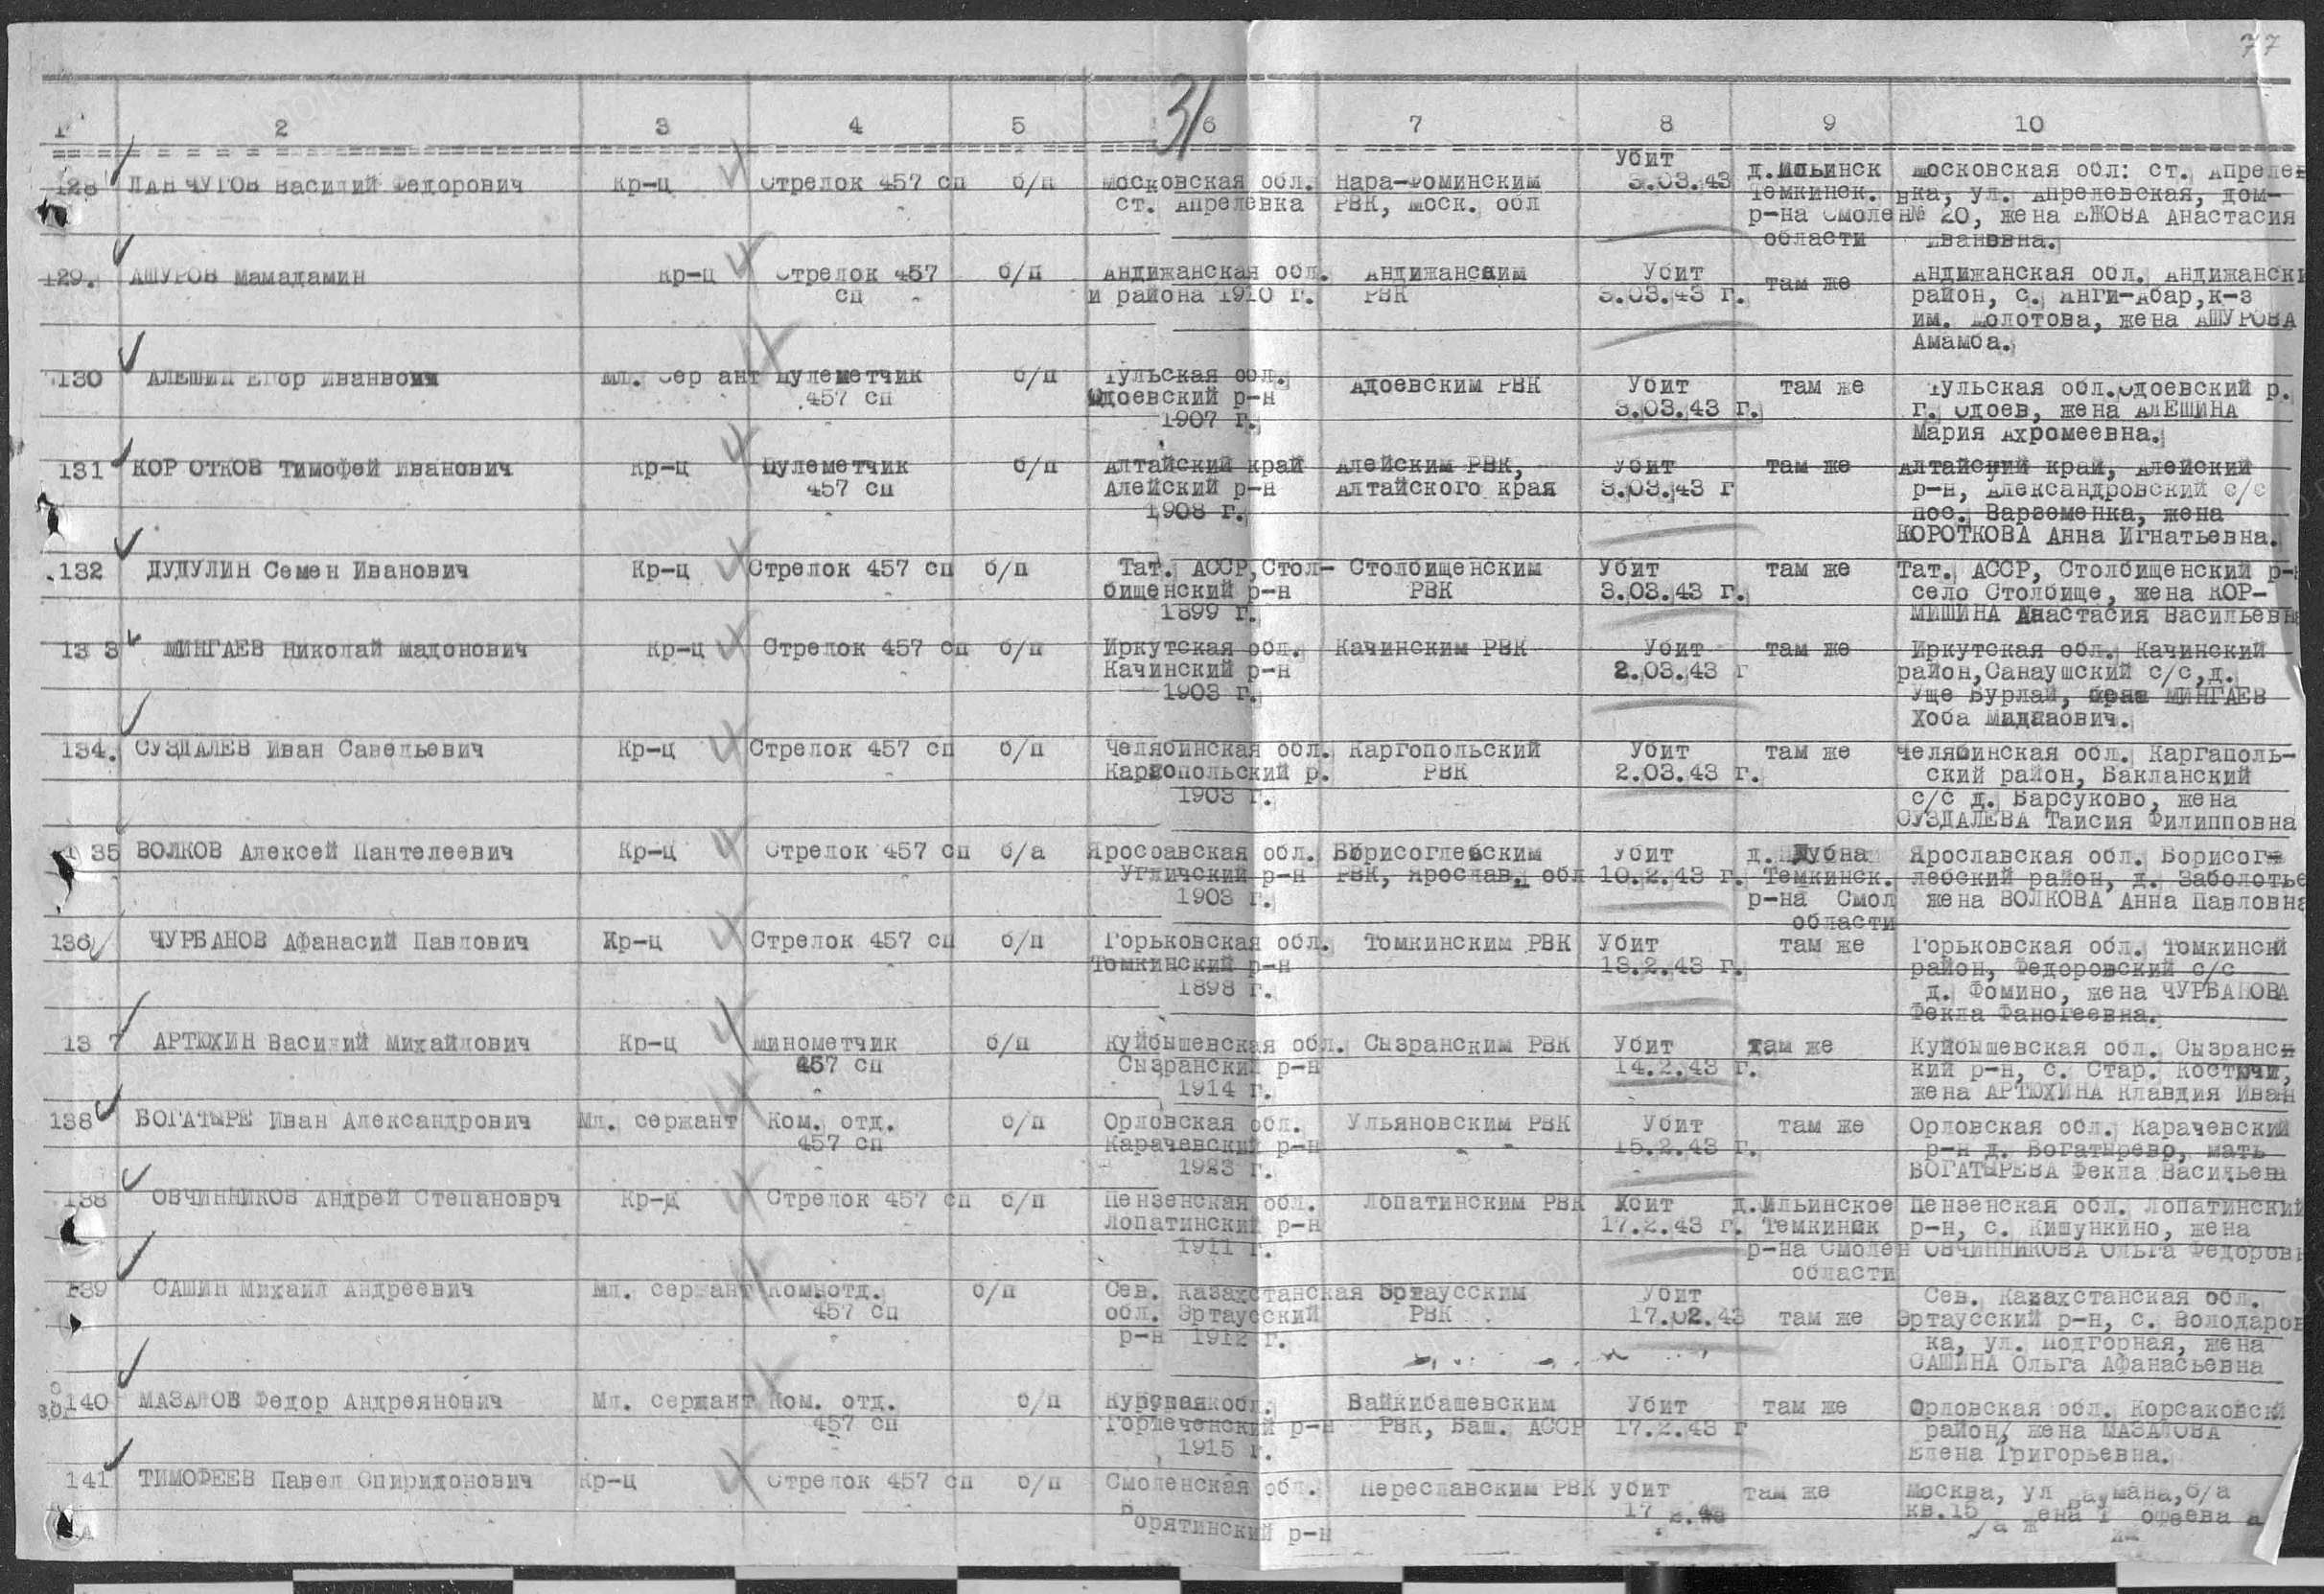 77
31
1 2 3 4 5 6 7 8 9 10
128 ЛАНЧУГОВ Василий Федорович Кр-ц Стрелок 457 сп б/п Московская обл. Нара-Фоминским Убит 3.03.43 д.Ильинск Московская обл: ст. Апреле
ст. Апрелевка РВК, Моск. обл Темкинск. вка, ул. Апрелевская, дом-
р-на Смолен № 20, жена ЕЖОВА Анастасия
области Ивановна.
129. АШУРОВ Мамадамин Кр-ц Стрелок 457 б/п Андижанская обл. Андижанским Убит там же Андижанская обл. Андижански
сп и района 1910 г. РВК 3.03.43 г. район, с. Янги-Абар,к-з
им. Молотова, жена АШУРОВА
Амамба.
130 АЛЕШИН Егор Иванвоич Мл. сер ант Пулеметчик б/п Тульская обл. Адоевским РВК Убит там же Тульская обл.Одоевский р.
457 сп Одоевский р-н 3.03.43 г. г. Одоев, жена АЛЕШИНА
1907 г. Мария Ахромеевна.
131 КОР ОТКОВ Тимофей Иванович Кр-ц Пулеметчик б/п Алтайский край Алейским РВК, Убит там же Алтайский край, Алейский
457 сп Алейский р-н Алтайского края 3.03.43 г р-н, Александровский с/с
1908 г. пос. Варвеменка, жена
КОРОТКОВА Анна Игнатьевна.
132 ДУДУЛИН Семен Иванович Кр-ц Стрелок 457 сп б/п Тат. АССР,Стол- Столбищенским Убит там же Тат. АССР, Столбищенский р-н
бищенский р-н РВК 3.03.43 г. село Столбище, жена КОР-
1899 г. МИШИНА Анастасия Васильевн
13 3 МИНГАЕВ Николай Мадонович Кр-ц Стрелок 457 сп б/п Иркутская обл. Качинским РВК Убит там же Иркутская обл. Качинский
Качинский р-н 2.03.43 г район,Санаушский с/с,д.
1903 г. Уще Бурлай, брат МИНГАЕВ
Хоба
134. СУЗДАЛЕВ Иван Савельевич Кр-ц Стрелок 457 сп б/п Челябинская обл. Каргопольский Убит там же Челябинская обл. Каргаполь-
Каргопольский р. РВК 2.03.43 г. ский район, Бакланский
1903 г. с/с д. Барсуково, жена
СУЗДАЛЕВА Таисия Филипповна
135 ВОЛКОВ Алексей Пантелеевич Кр-ц Стрелок 457 сп б/а Яросоавская обл. Борисоглебским Убит д. Дубна Ярославская обл. Борисог-
Угличский р-н РВК, Ярослав. обл 10.2.43 г. Темкинск. лебский район, д. Заболотье
1903 г. р-на Смол жена ВОЛКОВА Анна Павловна
области
136 ЧУРБАНОВ Афанасий Павлович Кр-ц Стрелок 457 сп б/п Горьковская обл. Томкинским РВК Убит там же Горьковская обл. Томкинсий
Томкинский р-н 13.2.43 г. район, Федоровский с/с
1898 г. д. Фомино, жена ЧУРБАНОВА
Фекла Фаногеевна.
13 7 АРТЮХИН Василий Михайлович Кр-ц Минометчик б/п Куйбышевская обл. Сызранским РВК Убит там же Куйбышевская обл. Сызранс
457 сп Сызранский р-н 14.2.43 г. кий р-н, с. Стар. Костючи,
1914 г. жена АРТЮХИНА Клавдия Иван
138 БОГАТЫРЕ Иван Александрович Мл. сержант Ком. отд. б/п Орловская обл. Ульяновским РВК Убит там же Орловская обл. Карачевский
457 сп Карачевский р-н 15.2.43 г. р-н д. Богатырево, мать
1923 г. БОГАТЫРЕВА Фекла Васильевн
138 ОВЧИННИКОВ Андрей Степановрч Кр-ц Стрелок 457 сп б/п Пензенская обл. Лопатинским РВК Убит д.Ильинское Пензенская обл. Лопатинский
Лопатинский р-н 17.2.43 г. Темкинск р-н, с. Кишункино, жена
1911 г. р-на Смолен ОВЧИННИКОВА Ольга Федоровн
области
139 САШИН Михаил Андреевич Мл. сержант Ком.отд. б/п Сев. Казахстанская Эртаусским Убит Сев. Казахстанская обл.
457 сп обл. Эртаусский РВК 17.02.43 там же Эртаусский р-н, с. Володаров
р-н 1912 г. ка, ул. Подгорная, жена
САШИНА Ольга Афанасьевна
140 МАЗАЛОВ Федор Андреянович Мл. сержант Ком. отд. б/п Курская обл. Вайкибашевским Убит там же Орловская обл. Корсаковски
457 сп Горшеченский р-н РВК, Баш. АССР 17.2.43 г район, жена МАЗАЛОВА
1915 г. Елена Григорьевна.
141 ТИМОФЕЕВ Павел Спиридонович Кр-ц Стрелок 457 сп б/п Смоленская обл. Переславским РВК убит там же Москва, ул Баумана,б/а
Ворятинский р-н 17 2.43 кв.15 жена